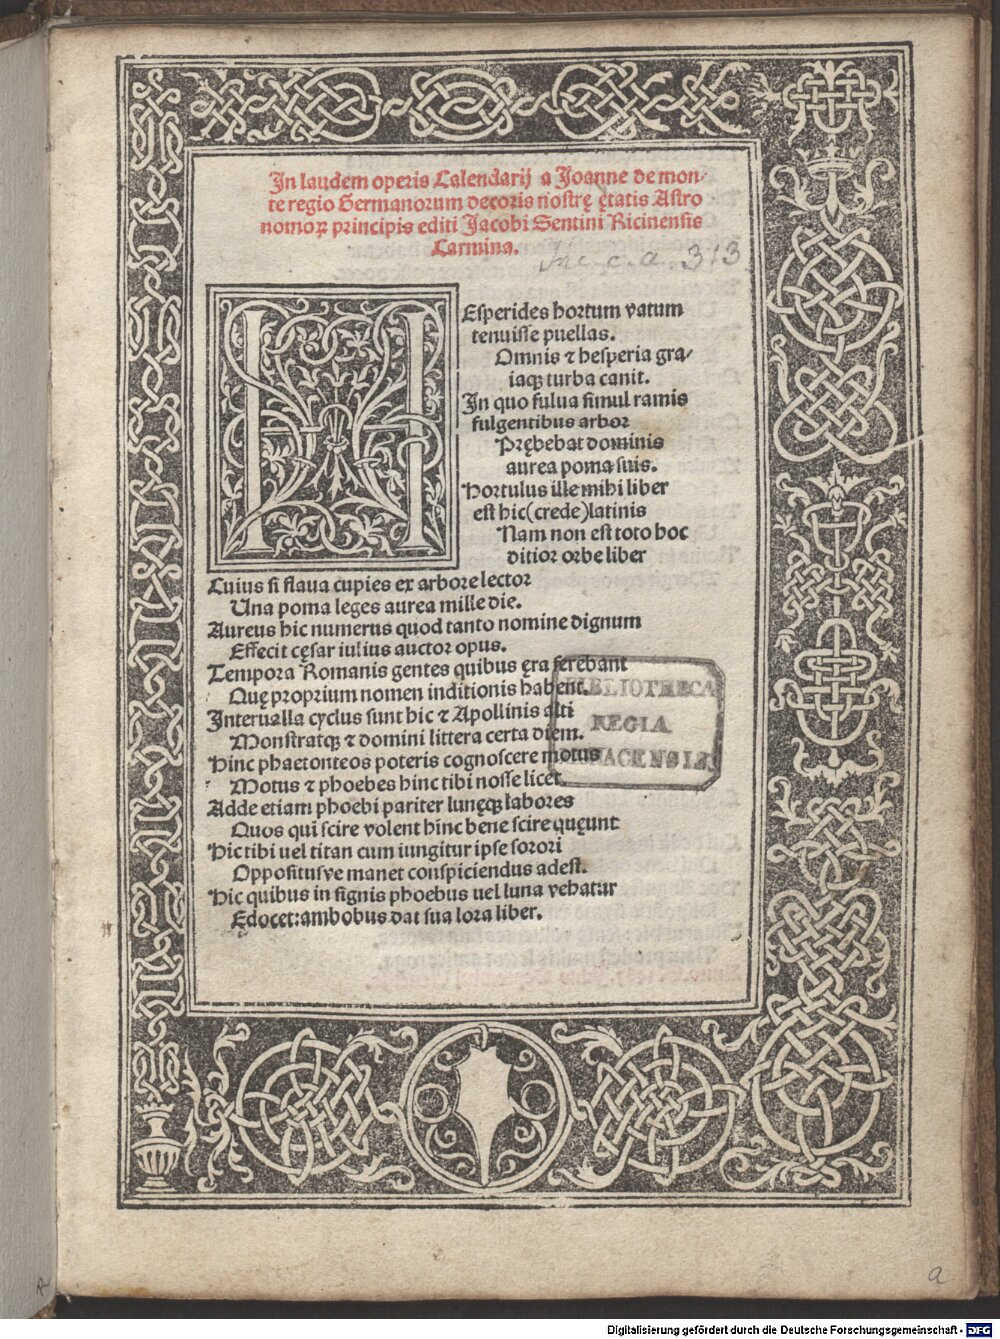 In laudem operis Calendarij a Joanne de mon-
te regio Germanorum decoris nostrę ętatis Astro
nomoꝝ principis editi Jacobi Sentini Ricinensis
Carmina.
Inc. c. a. 313.
HEsperides hortum vatum
tenuisse puellas.
Omnis ⁊ hesperia gra-
iaqꝫ turba canit.
In quo fulua simul ramis
fulgentibus arbor
Prębebat dominis
aurea poma suis.
Hortulus ille mihi liber
est hic(crede)latinis
Nam non est toto hoc
ditior orbe liber
Cuius si flaua cupies ex arbore lector
Una poma leges aurea mille die.
Aureus hic numerus quod tanto nomine dignum
Effecit cęsar iulius auctor opus.
Tempora Romanis gentes quibus ęra ferebant
Quę proprium nomen inditionis habent.
Interualla cyclus sunt hic ⁊ Apollinis alti
Monstratqꝫ ⁊ domini littera certa diem.
Hinc phaetonteos poteris cognoscere motus
Motus ⁊ phoebes hinc tibi nosse licet
Adde etiam phoebi pariter lunęqꝫ labores
Quos qui scire volent hinc bene scire quęunt
Hic tibi uel titan cum iungitur ipse sorori
Oppositusve manet conspiciendus adest.
Hic quibus in signis phoebus uel luna vehatur
Edocet:ambobus dat sua lora liber.
BIBLIOTHECA
REGIA
MONACENSIS
a
Digitalisierung gefördert durch die Deutsche Forschungsgemeinschaft - DFG